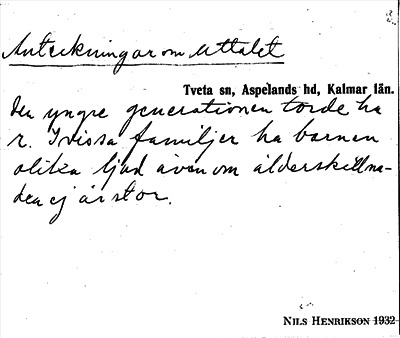 Anteckningar om uttalet
Tveta sn, Aspelands hd, Kalmar län.
Den yngre generationen torde ha
r. I vissa familjer ha barnen
olika ljud även om ålderskillna-
den ej är stor.
NILS HENRIKSON 1932